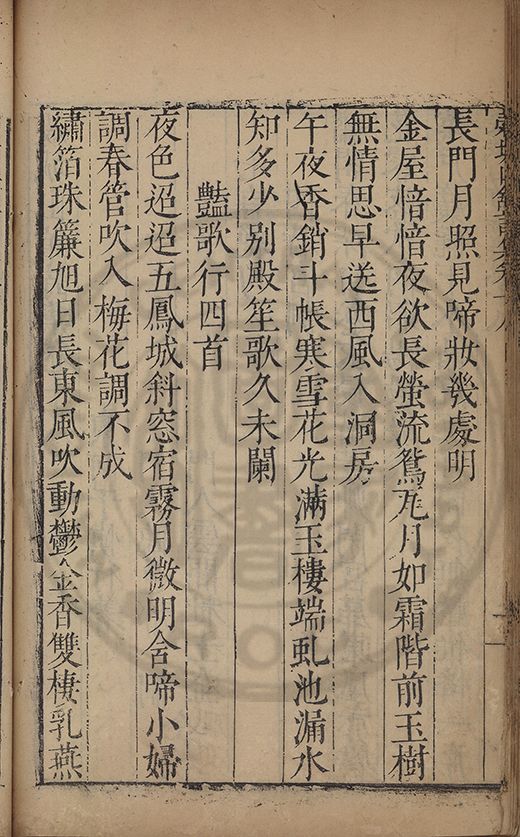 長門月照見啼妝幾處明
金屋愔愔夜欲長螢流鴛瓦月如霜階前玉樹
無情思早送西風入洞房
午夜香銷斗帳寒雪花光滿玉樓端虬池漏水
知多少别殿笙歌久未闌
豔歌行四首
夜色迢迢五鳳城斜窓宿霧月微明含啼小婦
調春管吹入梅花調不成
繡箔珠簾旭日長東風吹動鬱金香雙棲乳燕